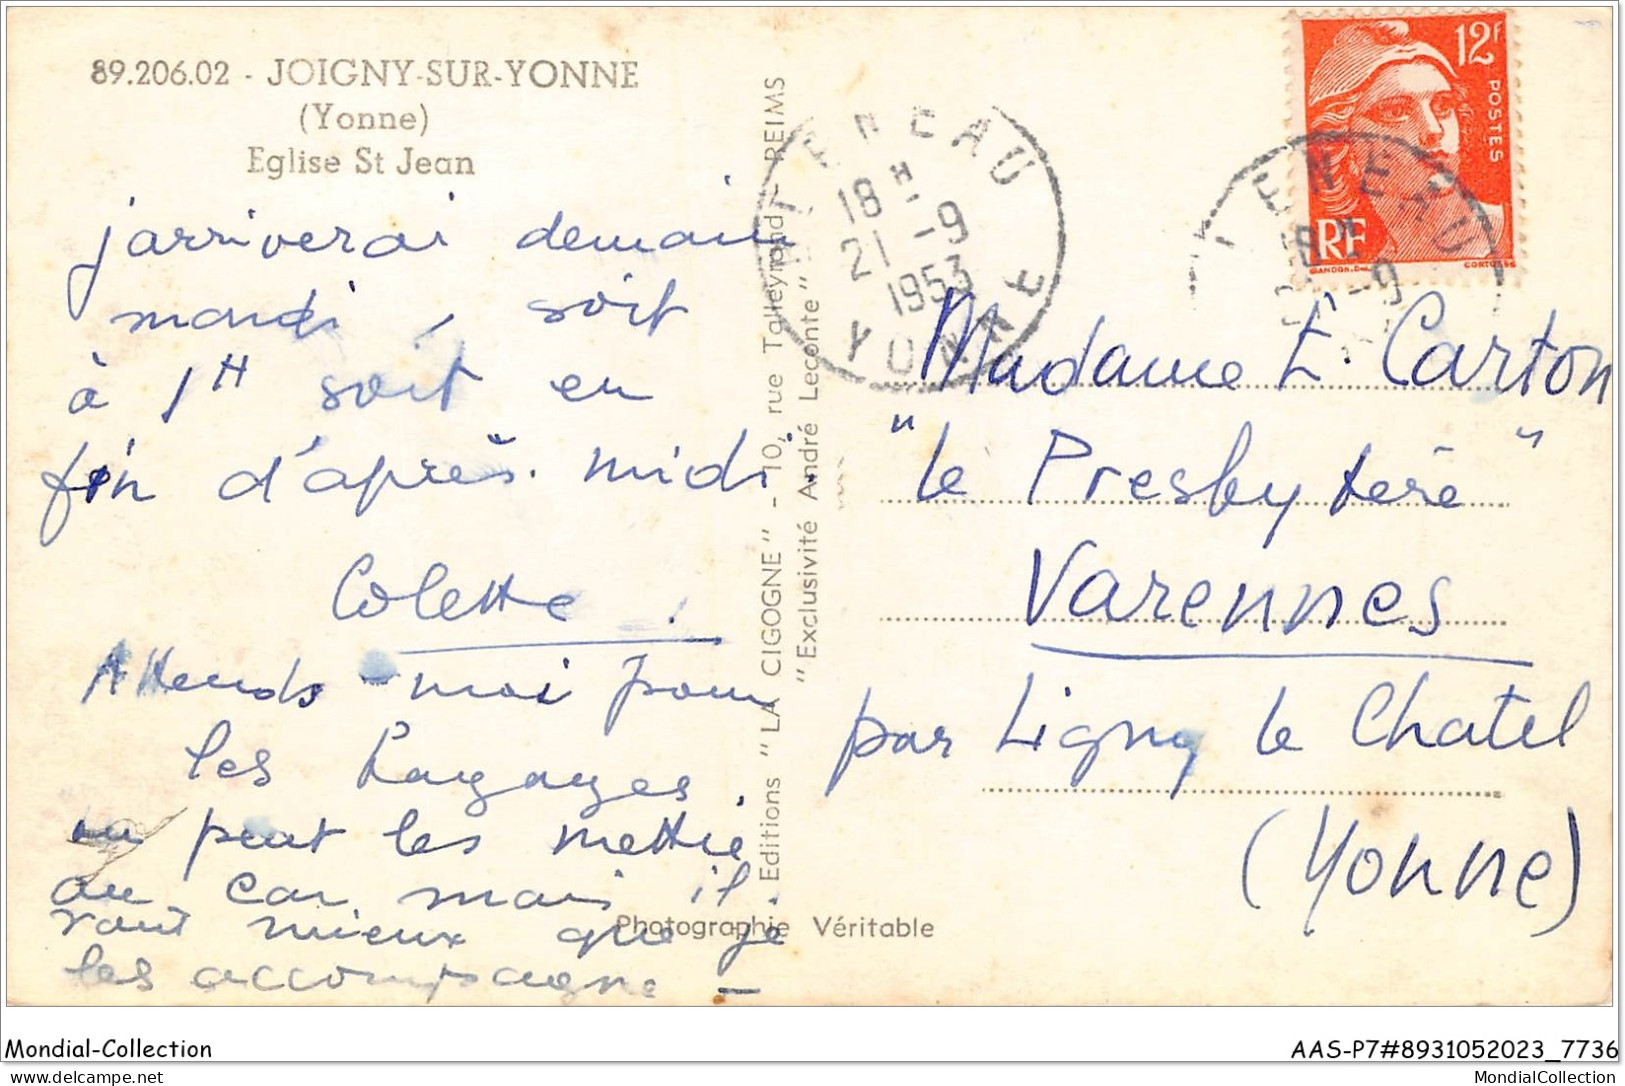 89.206.02 - JOIGNY-SUR-YONNE
(Yonne)
Eglise St Jean
j'arriverai demain
mardi, soit
à 1H soit en
fin d'après.midi
Colette.
Attends-moi pour
les bagages.
on peut les mettre
au car mais il
vaut mieux que je
les accompagne -
Editions "LA CIGOGNE" - 10, rue Talleyrand - REIMS
"Exclusivité André Leconte"
Photographie Véritable
18H
21-9
1953
YONNE
12F
POSTES
RF
Madame E. Carton
"le Presbytère"
Varennes
par Ligny le Chatel
(Yonne)
Mondial-Collection
AAS-P7#8931052023_7736
delcampe.net
MondialCollection